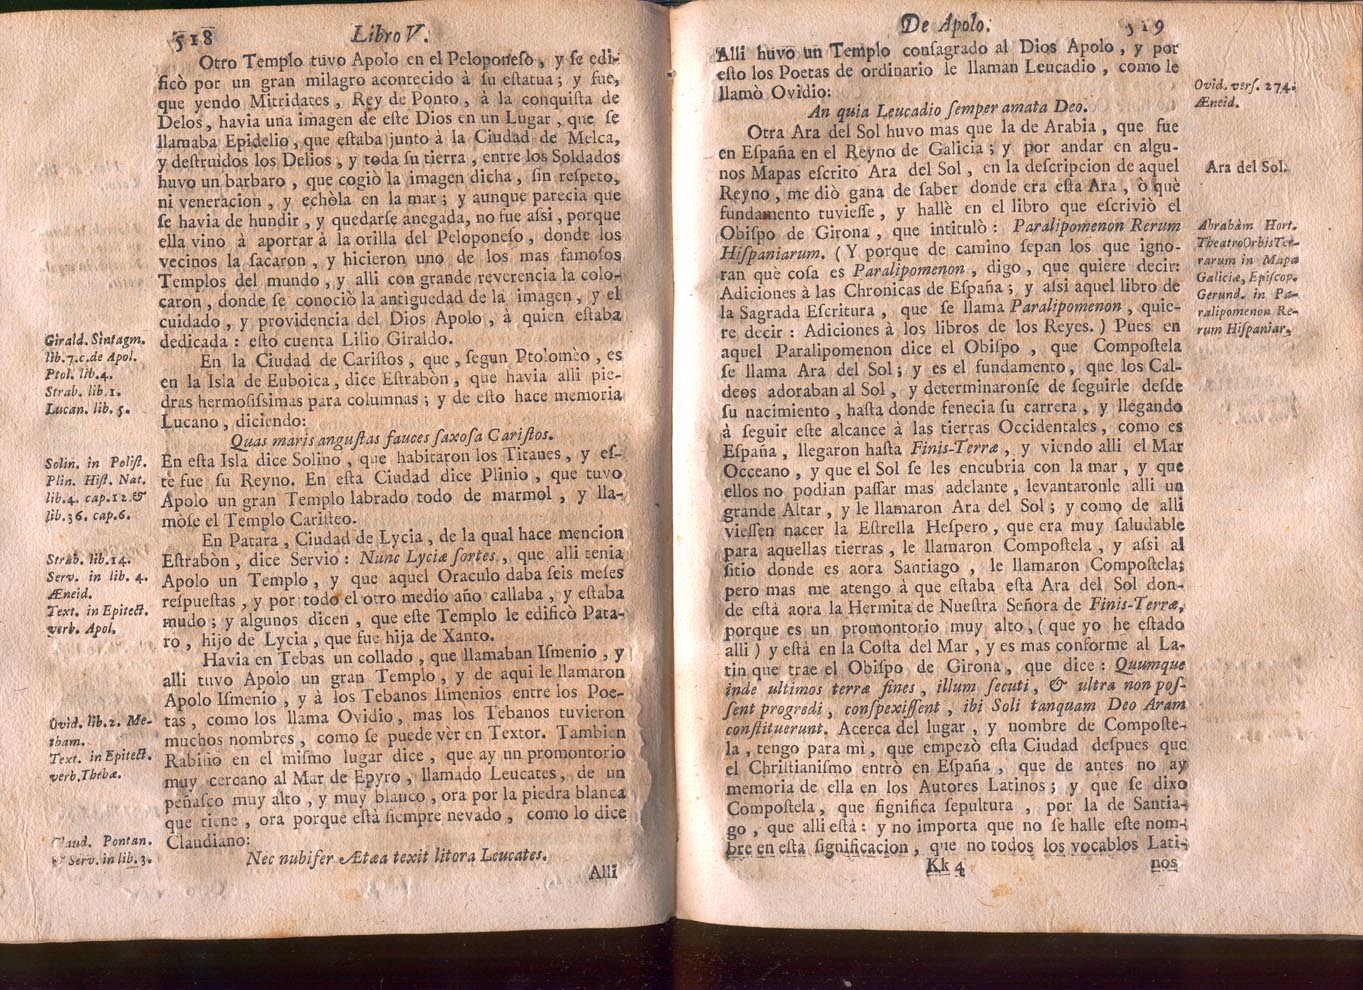 518 Libro V.
Otro Templo tuvo Apolo en el Peloponeso, y se edi-
ficò por un gran milagro acontecido à su estatua; y fue,
que yendo Mitridates, Rey de Ponto, à la conquista de
Delos, havia una imagen de este Dios en un Lugar, que se
llamaba Epidelio, que estaba junto à la Ciudad de Melca,
y destruidos los Delios, y toda su tierra, entre los Soldados
huvo un barbaro, que cogiò la imagen dicha, sin respeto,
ni veneracion, y echòla en la mar; y aunque parecia que
se havia de hundir, y quedarse anegada, no fue assi, porque
ella vino à aportar à la orilla del Peloponeso, donde los
vecinos la sacaron, y hicieron uno de los mas famosos
Templos del mundo, y alli con grande reverencia la colo-
caron, donde se conociò la antiguedad de la imagen, y el
cuidado, y providencia del Dios Apolo, à quien estaba
dedicada: esto cuenta Lilio Giraldo.
En la Ciudad de Caristos, que, segun Ptolomèo, es
en la Isla de Euboica, dice Estrabòn, que havia alli pie-
dras hermosissimas para columnas; y de esto hace memoria
Lucano, diciendo:
Quas maris angustas fauces saxosa Caristos.
En esta Isla dice Solino, que habitaron los Titanes, y es-
te fue su Reyno. En esta Ciudad dice Plinio, que tuvo
Apolo un gran Templo labrado todo de marmol, y lla-
mòse el Templo Caristeo.
En Patara, Ciudad de Lycia, de la qual hace mencion
Estrabòn, dice Servio: Nunc Lyciæ sortes, que alli tenia
Apolo un Templo, y que aquel Oraculo daba seis meses
respuestas, y por todo el otro medio año callaba, y estaba
mudo; y algunos dicen, que este Templo le edificò Pata-
ro, hijo de Lycia, que fue hija de Xanto.
Havia en Tebas un collado, que llamaban Ismenio, y
alli tuvo Apolo un gran Templo, y de aqui le llamaron
Apolo Ismenio, y à los Tebanos Ismenios entre los Poe-
tas, como los llama Ovidio, mas los Tebanos tuvieron
muchos nombres, como se puede ver en Textor. Tambien
Rabisio en el mismo lugar dice, que ay un promontorio
muy cercano al Mar de Epyro, llamado Leucates, de un
peñasco muy alto, y muy blanco, ora por la piedra blanca
que tiene, ora porque està siempre nevado, como lo dice
Claudiano:
Nec nubifer Ætæa texit litora Leucates.
Alli
Girald. Sintagm.
lib.7.c.de Apol.
Ptol. lib.4.
Strab. lib.1.
Lucan. lib. 5.
Solin. in Polist.
Plin. Hist. Nat.
lib.4. cap.12.&
lib.36. cap.6.
Strab. lib.14.
Serv. in lib. 4.
Æneid.
Text. in Epitect.
verb. Apol.
Ovid. lib.2. Me-
tham.
Text. in Epitect.
verb.Thebæ.
Claud. Pontan.
& Serv. in lib.3.
De Apolo. 519
Alli huvo un Templo consagrado al Dios Apolo, y por
esto los Poetas de ordinario le llaman Leucadio, como le
llamò Ovidio:
An quia Leucadio semper amata Deo.
Otra Ara del Sol huvo mas que la de Arabia, que fue
en España en el Reyno de Galicia; y por andar en algu-
nos Mapas escrito Ara del Sol, en la descripcion de aquel
Reyno, me diò gana de saber donde era esta Ara, ò què
fundamento tuviesse, y hallè en el libro que escriviò el
Obispo de Girona, que intitulò: Paralipomenon Rerum
Hispaniarum. (Y porque de camino sepan los que igno-
ran què cosa es Paralipomenon, digo, que quiere decir:
Adiciones à las Chronicas de España; y assi aquel libro de
la Sagrada Escritura, que se llama Paralipomenon, quie-
re decir: Adiciones à los libros de los Reyes.) Pues en
aquel Paralipomenon dice el Obispo, que Compostela
se llama Ara del Sol; y es el fundamento, que los Cal-
deos adoraban al Sol, y determinaronse de seguirle desde
su nacimiento, hasta donde fenecia su carrera, y llegando
à seguir este alcance à las tierras Occidentales, como es
España, llegaron hasta Finis-Terræ, y viendo alli el Mar
Occeano, y que el Sol se les encubria con la mar, y que
ellos no podian passar mas adelante, levantaronle alli un
grande Altar, y le llamaron Ara del Sol; y como de alli
viessen nacer la Estrella Hespero, que era muy saludable
para aquellas tierras, le llamaron Compostela, y assi al
sitio donde es aora Santiago, le llamaron Compostela;
pero mas me atengo à que estaba esta Ara del Sol don-
de està aora la Hermita de Nuestra Señora de Finis-Terræ,
porque es un promontorio muy alto, (que yo he estado
alli) y està en la Costa del Mar, y es mas conforme al La-
tin que trae el Obispo de Girona, que dice: Quumque
inde ultimos terræ fines, illum secuti, & ultra non pos-
sent progredi, conspexissent, ibi Soli tanquam Deo Aram
constituerunt. Acerca del lugar, y nombre de Composte-
la, tengo para mi, que empezò esta Ciudad despues que
el Christianismo entrò en España, que de antes no ay
memoria de ella en los Autores Latinos; y que se dixo
Compostela, que significa sepultura, por la de Santia-
go, que alli està: y no importa que no se halle este nom-
bre en esta significacion, que no todos los vocablos Lati-
Kk 4 nos
Ovid. vers. 274.
Æneid.
Ara del Sol.
Abrahàm Hort.
Theatro Orbis Ter-
rarum in Mapa
Galiciæ, Episcop.
Gerund. in Pa-
ralipomenon Re-
rum Hispaniar.